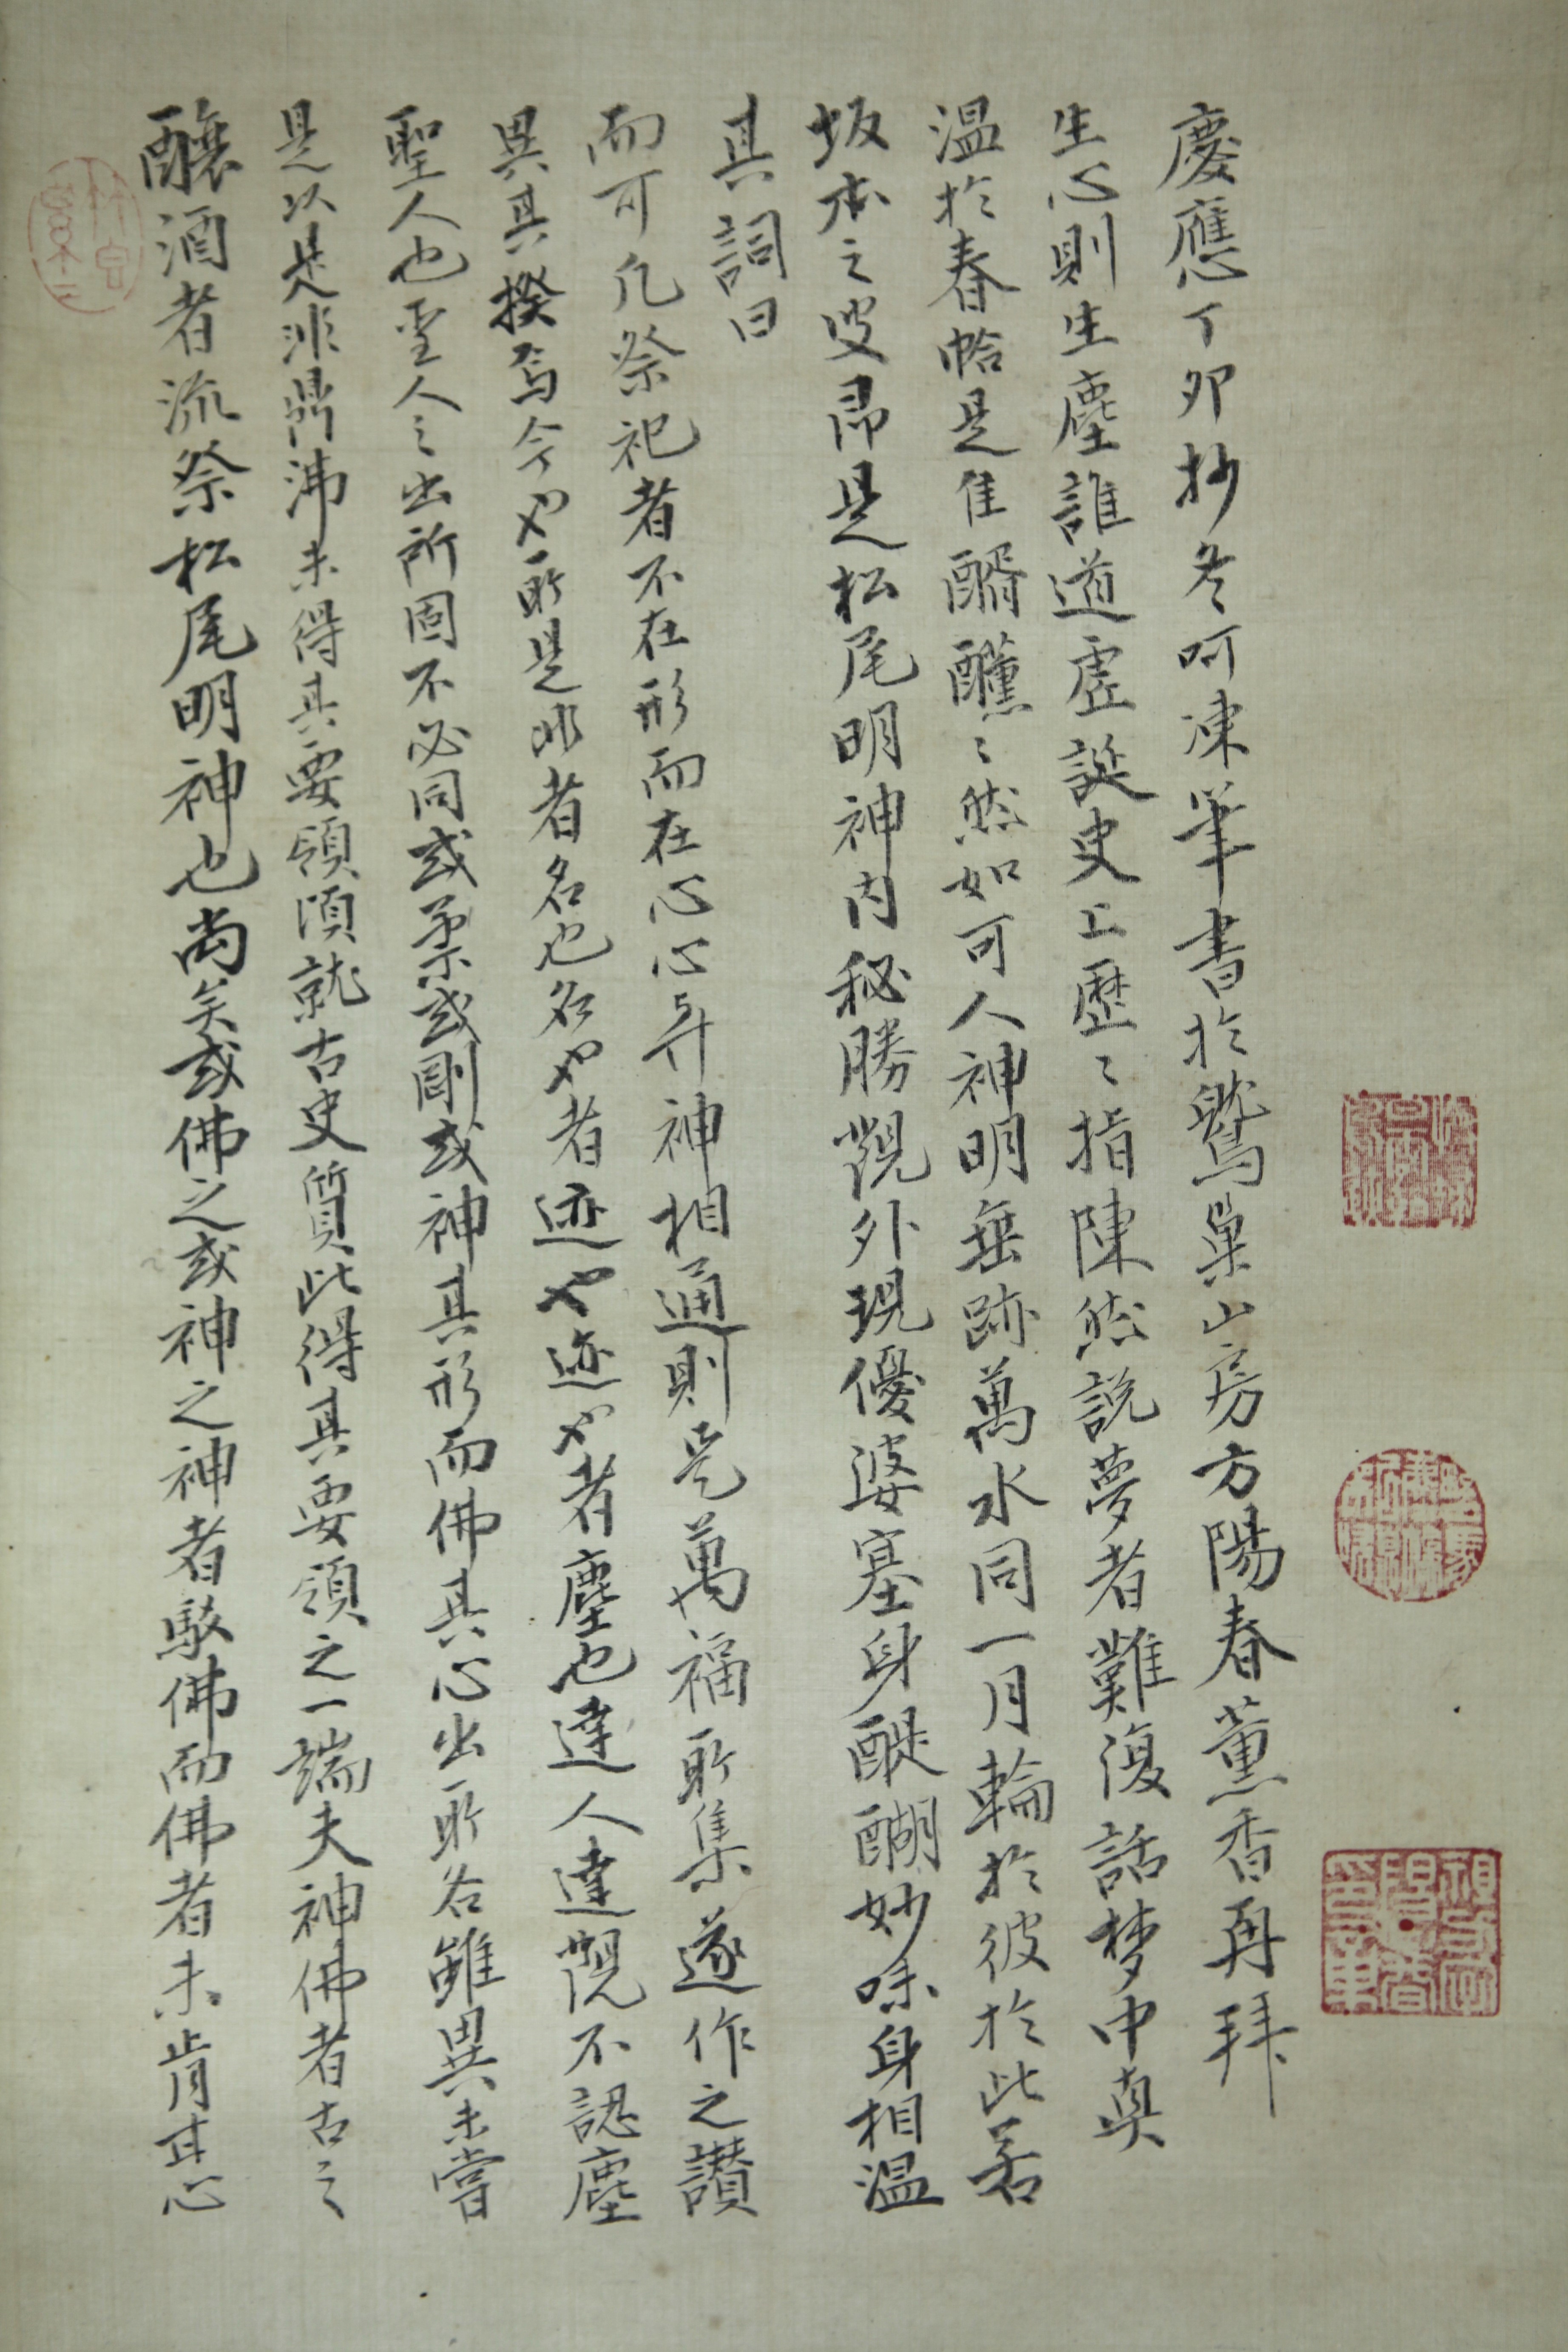 釀酒者流祭松尾明神也尚矣或佛之或神之神者駭佛而佛者未肯其心
是以是非鼎沸未得其要領須就古史質此得其要領之一端夫神佛者古之
聖人也聖人之出所固不必同或柔或剛或神其形而佛其心出所各雖異未嘗
異其揆焉今也所是非者名也名也者迹也迹也者塵也達人達觀不認塵
而可凡祭祀者不在形而在心心与神相通則是萬福所集遂作之讃
其詞曰
坂本之叟帛是松尾明神内秘勝觀外現優婆塞身醍醐妙味身相温
温於春帢是隹醑醺〻然如可人神明垂跡萬水同一月輪於彼於此若
生心則生塵誰道虚誕史上歴〻指陳然説夢者難復話梦中真
慶應丁卯抄冬呵凍筆書於鷲巣山房方陽春薫香再拜